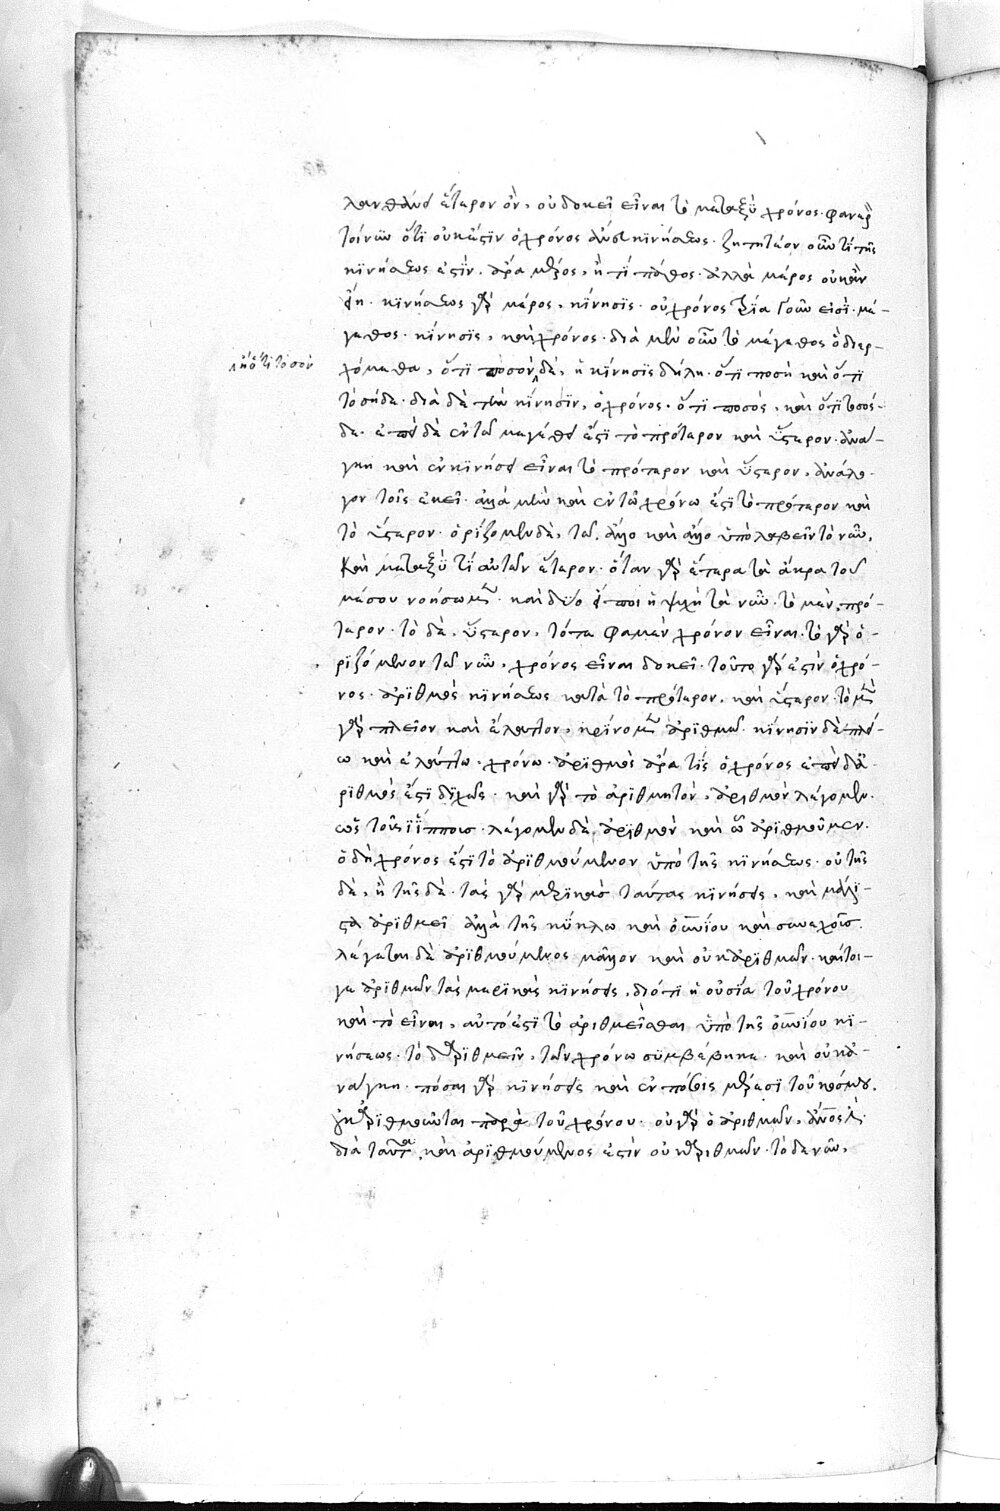 λανθάνει ἕτερον ὂν, οὐ δοκεῖ εἶναι τὸ μεταξὺ χρόνος. φανερὸν
τοίνυν ὅτι οὐκ ἔστιν ὁ χρόνος ἄνευ κινήσεως. ζητητέον οὖν τί τῆς
κινήσεως ἐστίν. ἆρα μέρος, ἢ τί πάθος. ἀλλὰ μέρος οὐκ ἂν
εἴη. κινήσεως γὰρ μέρος, κίνησις. οὐ χρόνος τρία γοῦν εἰσὶ. μέ-
γεθος. κίνησις, καὶ χρόνος. διὰ μὲν οὖν τὸ μέγεθος ὃ διερ-
χόμεθα, ὅτι ποσὸν δὲ, ἡ κίνησις δήλη. ὅτι ποσὴ καὶ ὅτι
καὶ ὅτι τοσόν
τοσήδε. διὰ δὲ τὴν κίνησιν, ὁ χρόνος. ὅτι ποσὸς, καὶ ὅτι τοσόσ-
δε. ἐπεὶ δὲ ἐν τῶ μεγέθει ἐστὶ τὸ πρότερον καὶ ὕστερον. ἀνάγ-
κη καὶ ἐν κινήσει εἶναι τὸ πρότερον καὶ ὕστερον, ἀνάλο-
γον τοῖς ἐκεῖ. ἀλλὰ μὲν καὶ ἐν τῶ χρόνω ἐστὶ τὸ πρότερον καὶ
τὸ ὕστερον. ὁρίζομεν δὲ, τῶ, ἄλλο καὶ ἄλλο ὑπολαβεῖν τὸ νῦν,
καὶ μεταξύ τι αὐτῶν ἕτερον. ὅταν γὰρ ἕτερα τὰ ἄκρα τοῦ
μέσου νοήσωμεν. καὶ δύο εἴποι ἡ ψυχὴ τὰ νῦν. τὸ μὲν, πρό-
τερον. τὸ δὲ, ὕστερον, τότε φαμὲν χρόνον εἶναι. τὸ γὰρ ὁ-
ριζόμενον τῶ νῦν, χρόνος εἶναι δοκεῖ. τοῦτο γάρ ἐστιν ὁ χρό-
νος. ἀριθμὸς κινήσεως κατὰ τὸ πρότερον, καὶ ὕστερον. τὸ μὲν
γὰρ πλεῖον καὶ ἔλαττον, κρίνομεν ἀριθμῶ. κίνησιν δὲ πλεί-
ω καὶ ἐλάττω, χρόνω. ἀριθμὸς ἄρα τίς ὁ χρόνος ἐπεὶ δ' ἀ-
ριθμός ἐστι διχῶς. καὶ γὰρ τὸ ἀριθμητὸν, ἀριθμὸν λέγομεν.
ὡς τοὺς ἵππους. λέγομεν δὲ, ἀριθμὸν καὶ ᾧ ἀριθμοῦμεν.
ὁ δὴ χρόνος ἐστὶ τὸ ἀριθμούμενον ὑπὸ τῆς κινήσεως. οὐ τῆσ
δὲ, ἢ τῆσδε. τὰς γὰρ μερικὰς ταύτας κινήσεις, καὶ μάλι-
στα ἀριθμεῖ ἀλλὰ τῆς κύκλω καὶ οὐρανίου καὶ συνεχοῦς.
λέγεται δὲ ἀριθμούμενος μᾶλλον καὶ οὐκ ἀριθμῶν. καίτοι-
γε ἀριθμῶν τὰς μερικὰς κινήσεις, διότι ἡ οὐσία τοῦ χρόνου
καὶ τὸ εἶναι, αὐτό ἐστι τὸ ἀριθμεῖσθαι ὑπὸ τῆς οὐρανίου κι-
νήσεως. τὸ δ' ἀριθμεῖν, τῶ χρόνω συμβέβηκε. καὶ οὐκ ἀ-
νάγκη. πόσαι γὰρ κινήσεις καὶ ἐν πόσοις μέρεσι τοῦ κόσμου,
οὐκ ἀριθμοῦνται παρὰ τοῦ χρόνου. οὐ γὰρ ὁ ἀριθμῶν,
διὰ ταῦτα, καὶ ἀριθμούμενος ἐστὶν οὐκ ἀριθμῶν. τὸ δὲ νῦν,